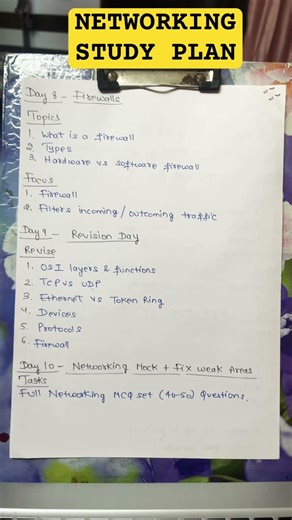 NETWORKING
STUDY PLAN
Day 8 - Firewalls
Topics
1. What is a firewall
2. Types
3. Hardware vs software firewall
Focus
1. Firewall
2. Filters incoming/outcoming traffic
Day 9 - Revision Day
Revise
1. OSI layers & functions
2. TCP vs UDP
3. Ethernet vs Token Ring
4. Devices
5. Protocols
6. Firewall
Day 10 - Networking Mock + fix weak Areas
Tasks
Full Networking MCQ set (40-50) Questions.